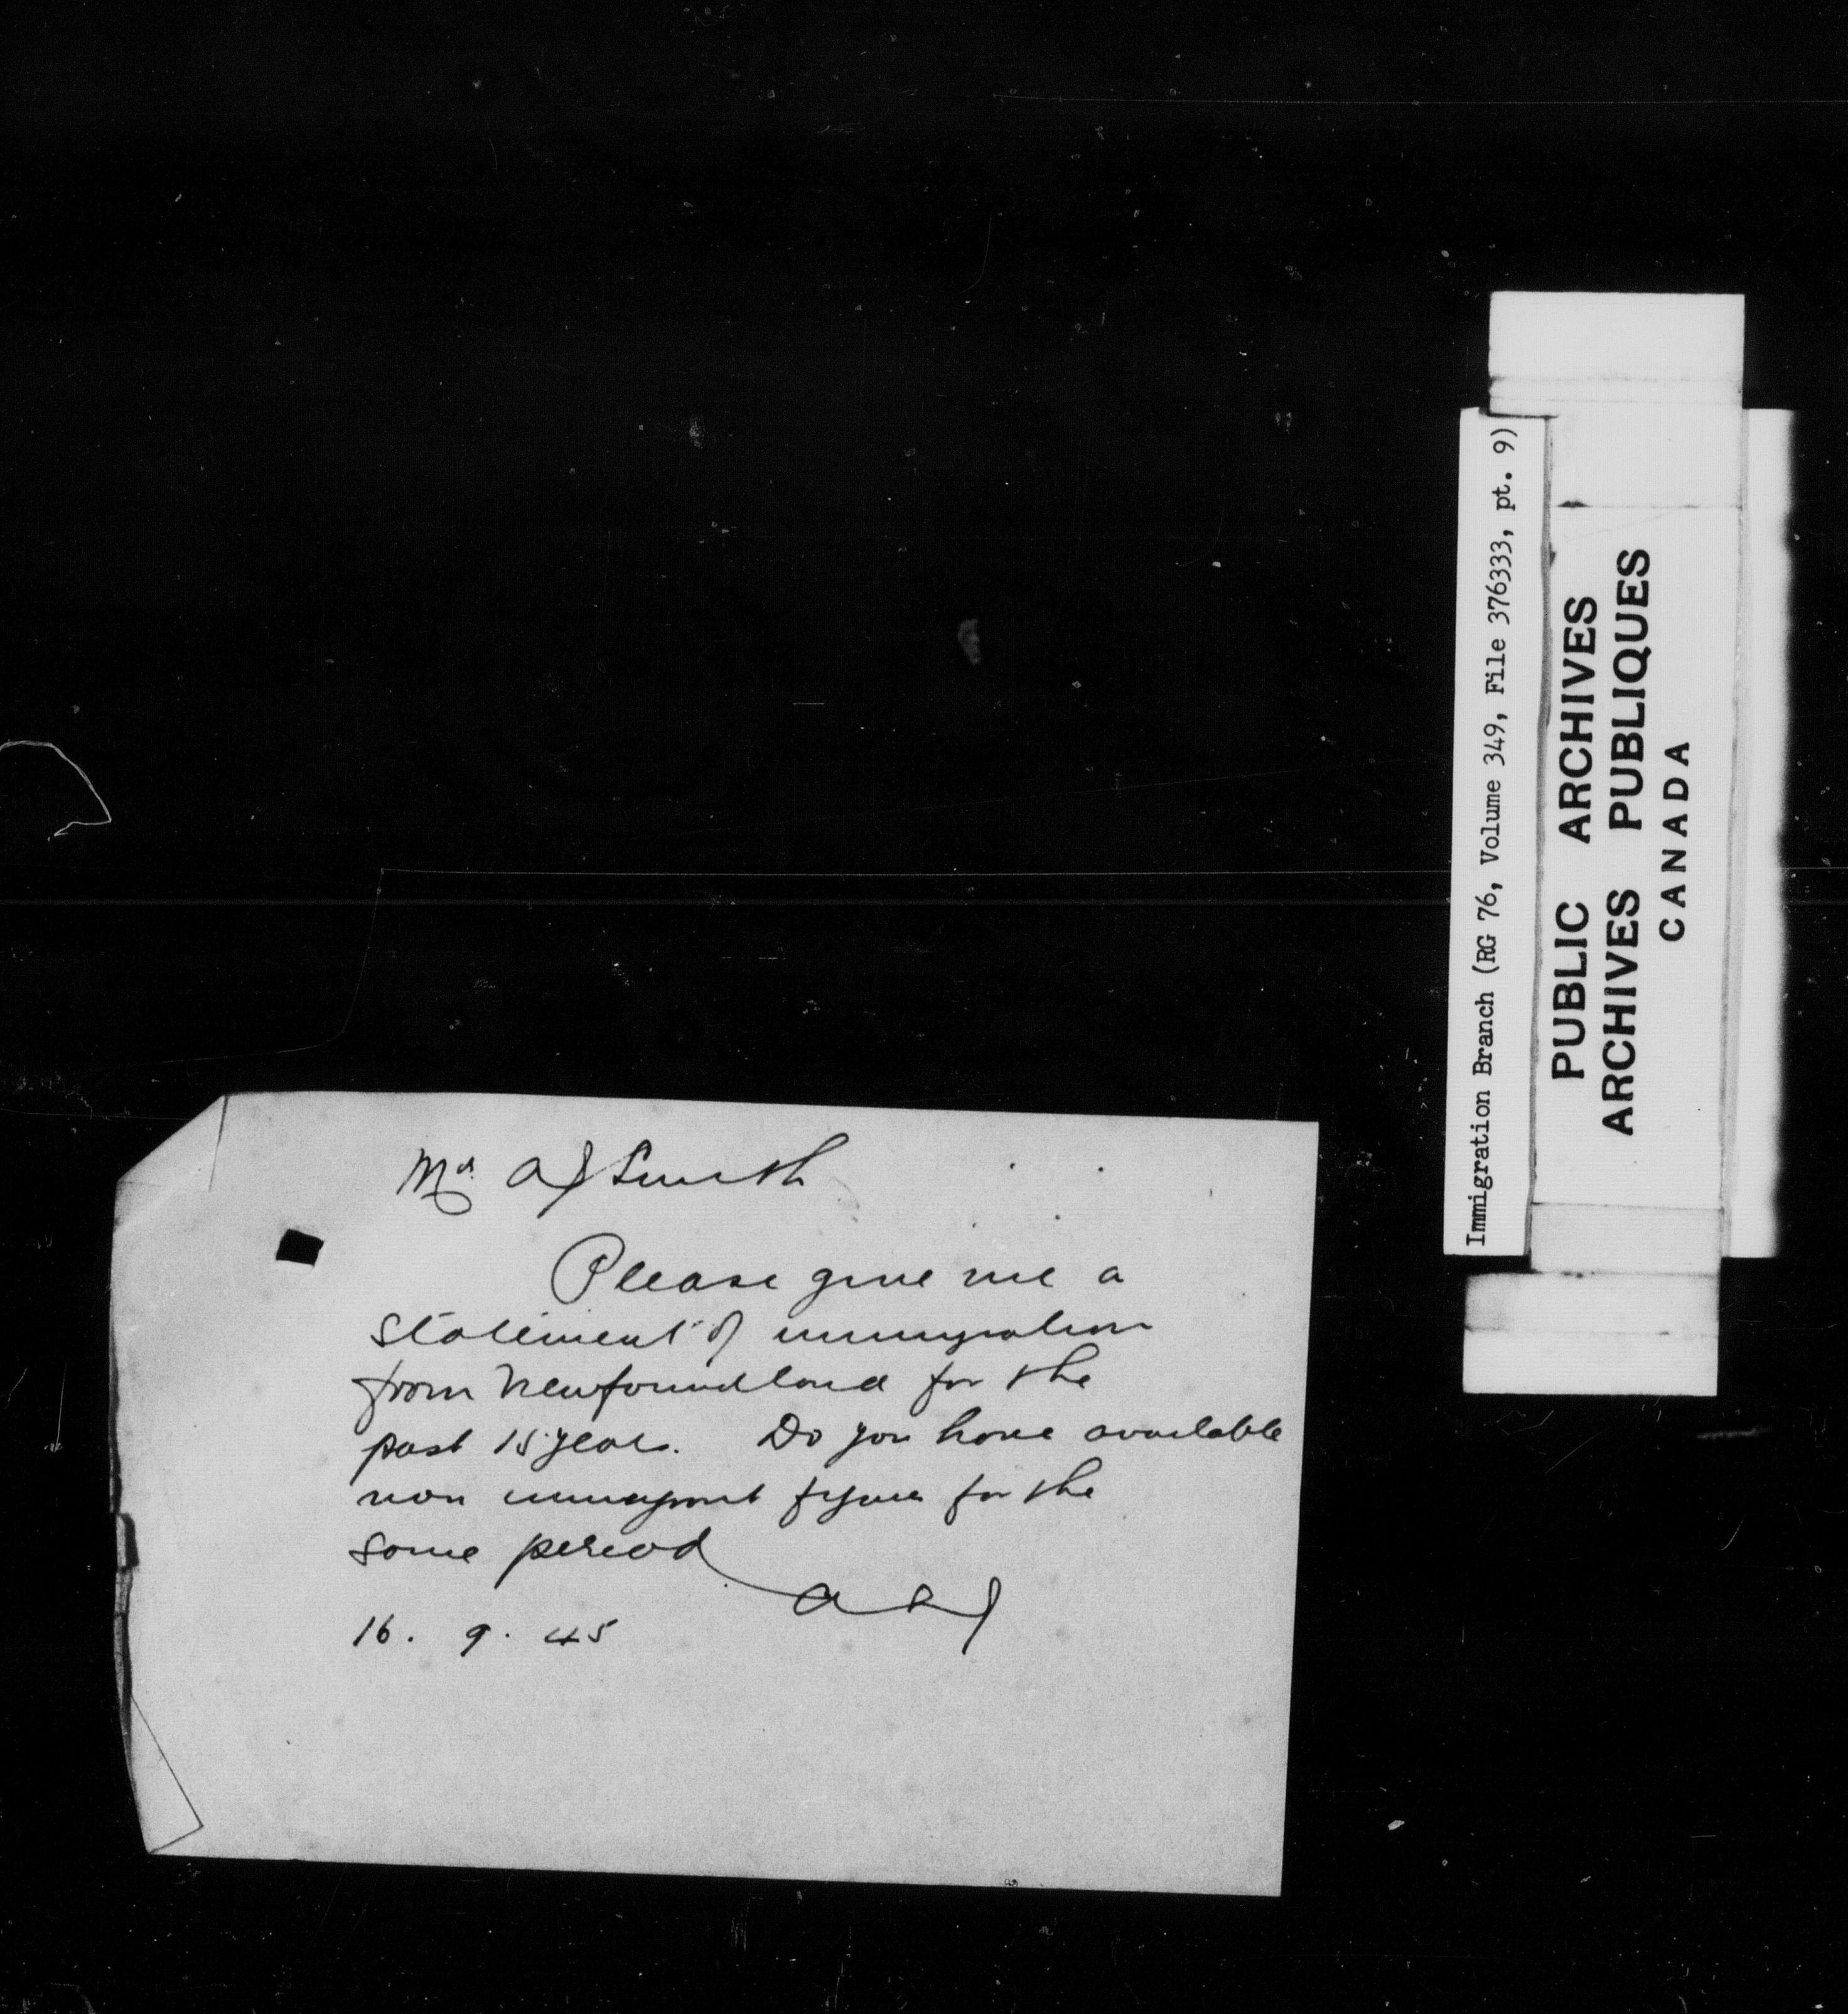 Mr. A J Smith
Please give me a
statement of immigration
from Newfoundland for the
past 15 years. Do you have available
non immigrant figures for the
same period
16. 9. 45
Immigration Branch (RG 76, Volume 349, File 376333, pt. 9)
PUBLIC ARCHIVES
ARCHIVES PUBLIQUES
CANADA